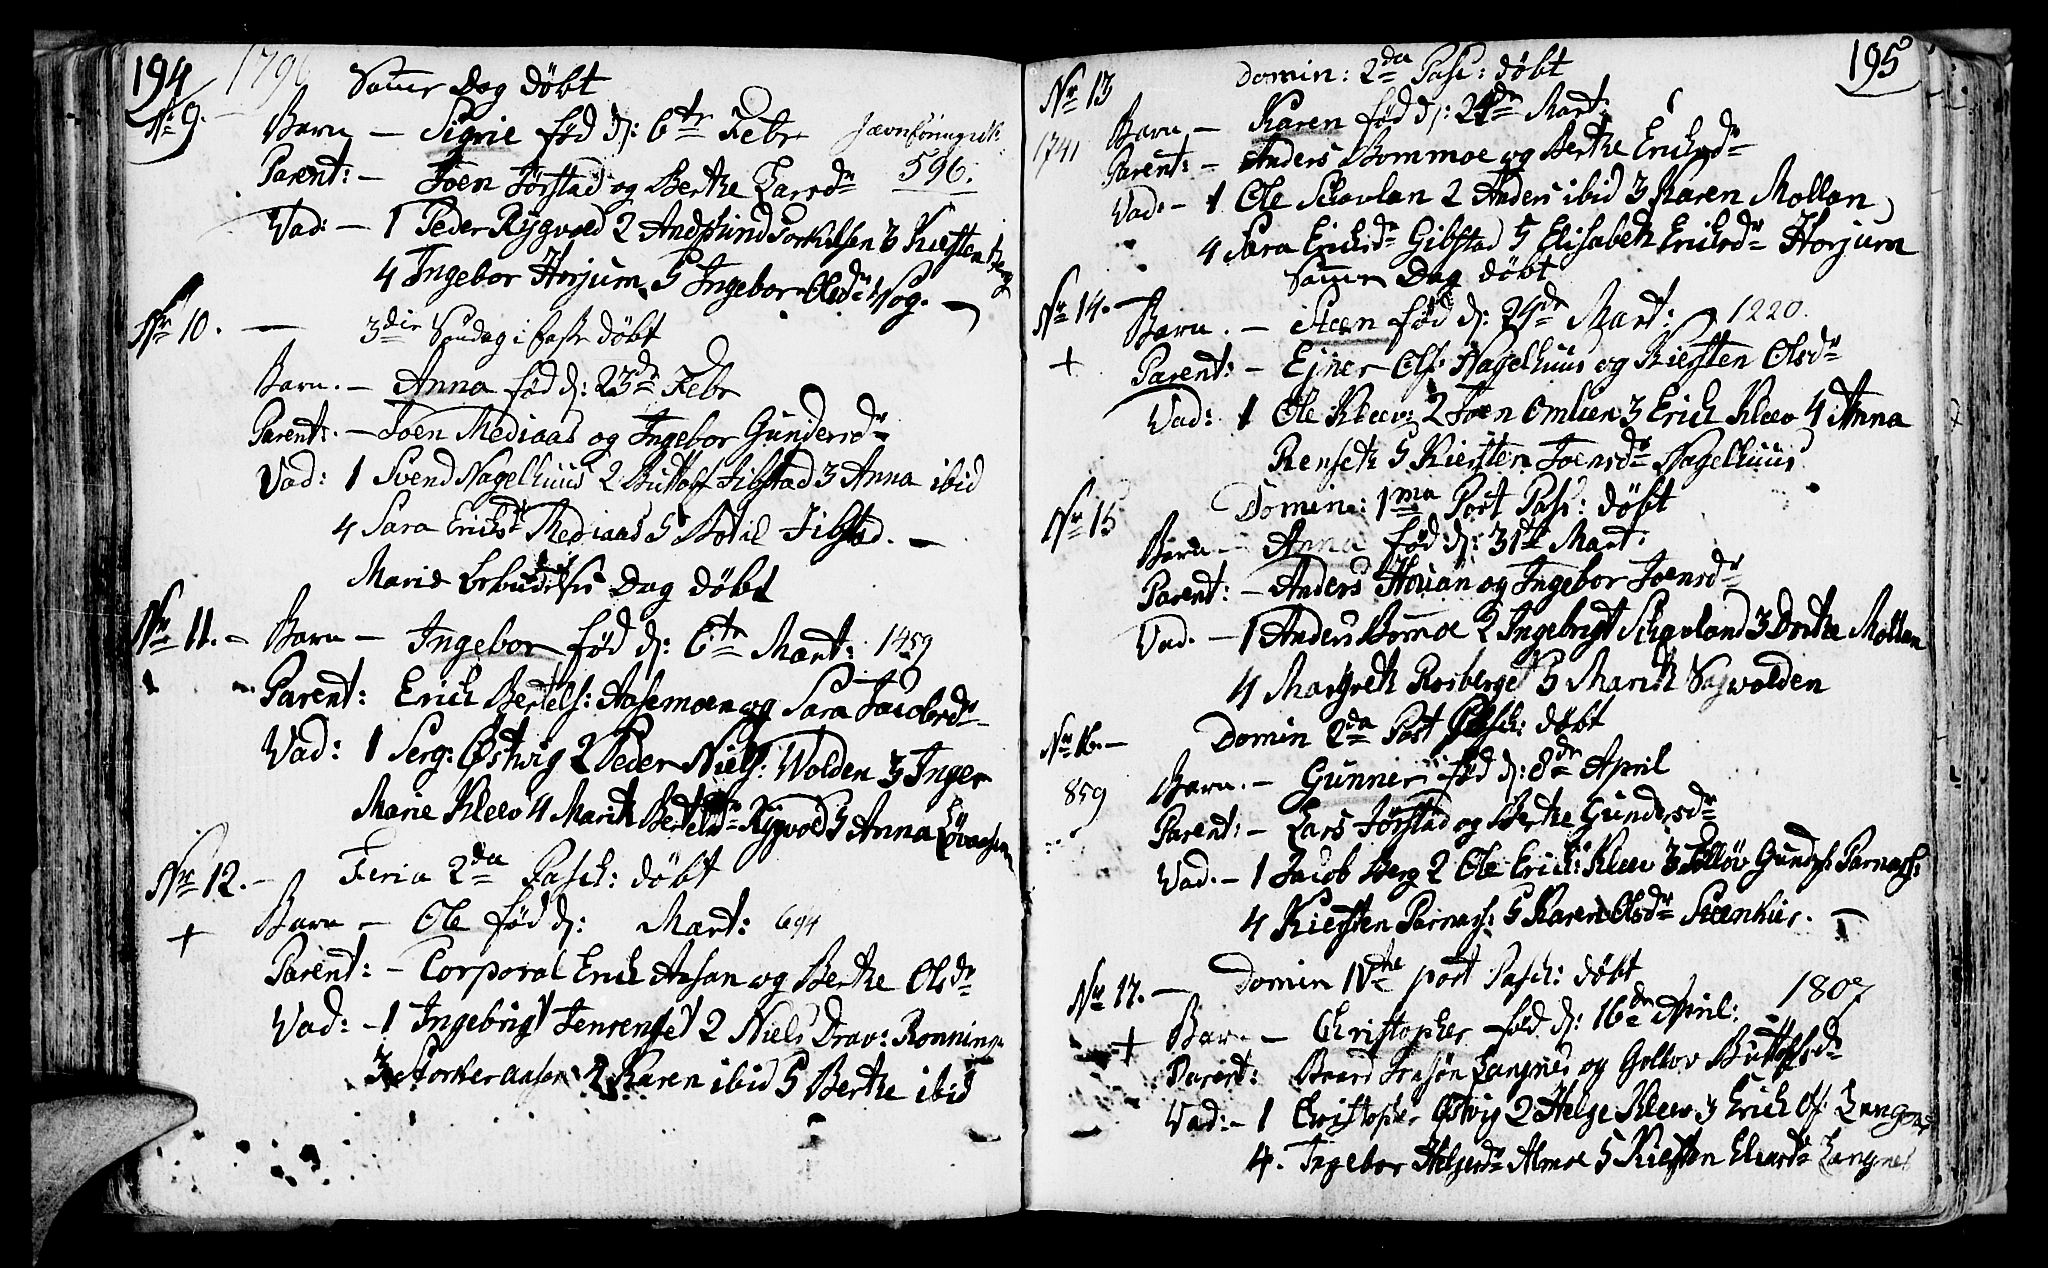 194 179
Samme Dag døbt
No 9. Barn – Sigrie fød d: 6te Febr
Parent: – Joen Jørstad og Berthe Larsdr 596.
Vad: – 1 Peder Rygvold 2 Andfind Torkelsen 3 Kiersten
4 Ingebor Horjum 5 Ingebor Olsdr Wog. –
Nr 10. – 3die Søndag i faste døbt
Barn. – Anna fød d: 23de Febr
Parent: – Joen Mediaas og Ingebor Gundersdr
Vad: 1 Svend Nagelhuus 2 Buttolf Jibstad 3 Anna ibid
4 Sara Ericksdr Mediaas 5 Botil Jibstad. –
Marie Dag døbt
Nr 11. – Barn – Ingebor fød d: 6te Mart: 1459
Parent: Erich Bertels: Aasemoen og Sara Jacobsdr
Vad: 1 Serg: Østvig 2 Peder Niels: Wolden 3 Inger
Marie Kleev 4 Marith Bertelsdr Rygvold 5 Anna
Nr 12. – Feria 2da Pasch: døbt
+ Barn – Ole fød d: Mart: 694
Parent: – Corporal Erich Aasan og Berthe Olsdr
Vad: – 1 Ingebrigt Jenrenset 2 Niels Drav: Ronningen
3 Storker Aasen 4 Karen ibid 5 Berthe ibid
195
Nr 13 Domin: 2da Pasc: døbt
1741 Barn – Karen fød d: 24de Mart:
Parent: – Anders Bommoe og Berthe Ericksdr
Vad: – 1 Ole Skavlan 2 Anders ibid 3 Karen Mollan
4 Sara Ericksdr Gibstad 5 Elisabeth Ericksdr Horjum
Samme Dag døbt
Nr 14. – Barn. – Steen fød d: 24de Mart: 1220.
+ Parent: – Ejner Ols: Nagelhuus og Kiersten Olsdr
Vad: 1 Ole Kleev: 2 Joen Omlien 3 Erich Kleev 4 Anna
Renseth 5 Kiersten Joensdr Nagelhuus
Nr 15 Domin: 1ma Post Pasc: døbt
Barn – Anna fød d: 31te Mart:
Parent: – Anders Houan og Ingebor Joensdr
Vad. – 1 Anders Bommoe 2 Ingebrigt Schavland 3 Dorthe Mollan
4 Margreth Rosberget 5 Marith Sagvolden
Nr 16. – Domin 2da Post Pasch: døbt
859 Barn. – Gunner fød d: 8de April
Parent: – Lars Jørstad og Berthe Gundersdr
Vad. – 1 Jacob Berg 2 Ole Erich: Kleev 3 Gunders: Parnass:
4 Kiersten Parnass: 5 Karen Olsdr Steenkier. –
Nr 17. – Domin IVte post Pasch: døbt
+ Barn – Christopher fød d: 16de April: 1807
Parent: Baard Langnes og Gollov Buttolfsdr
Vad: – 1 Christopher Østvig 2 Helge Kleev 3 Erich Ols: Langnes
4. Ingebor Helgesdr Almoe 5 Kiersten Elensdr Langnes